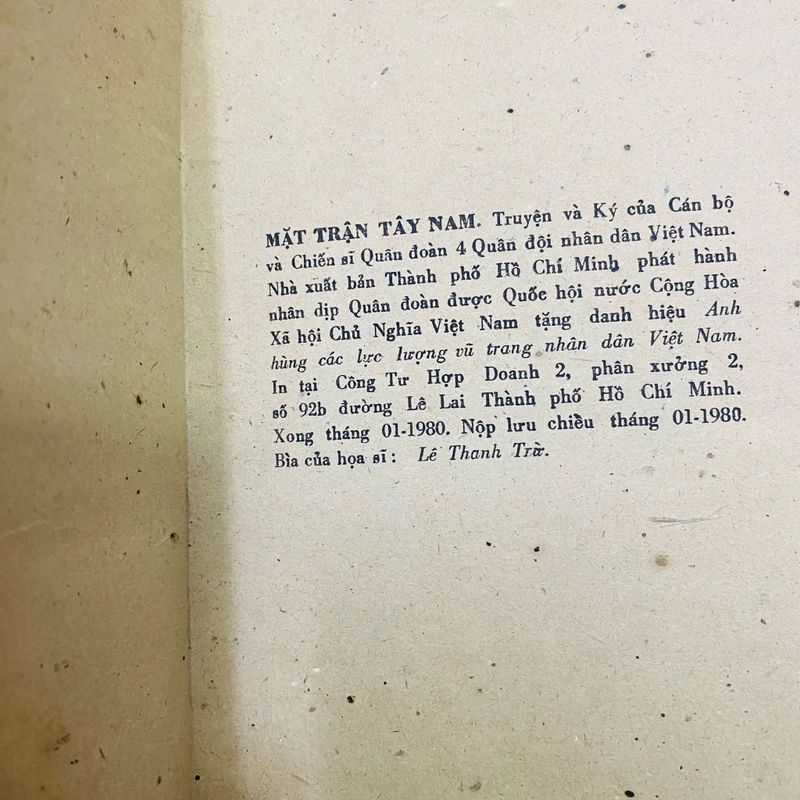 MẶT TRẬN TÂY NAM. Truyện và Ký của Cán bộ
và Chiến sĩ Quân đoàn 4 Quân đội nhân dân Việt Nam.
Nhà xuất bản Thành phố Hồ Chí Minh phát hành
nhân dịp Quân đoàn được Quốc hội nước Cộng Hòa
Xã hội Chủ Nghĩa Việt Nam tặng danh hiệu Anh
hùng các lực lượng vũ trang nhân dân Việt Nam.
In tại Công Tư Hợp Doanh 2, phân xưởng 2,
số 92b đường Lê Lai Thành phố Hồ Chí Minh.
Xong tháng 01-1980. Nộp lưu chiều tháng 01-1980.
Bìa của họa sĩ: Lê Thanh Trừ.